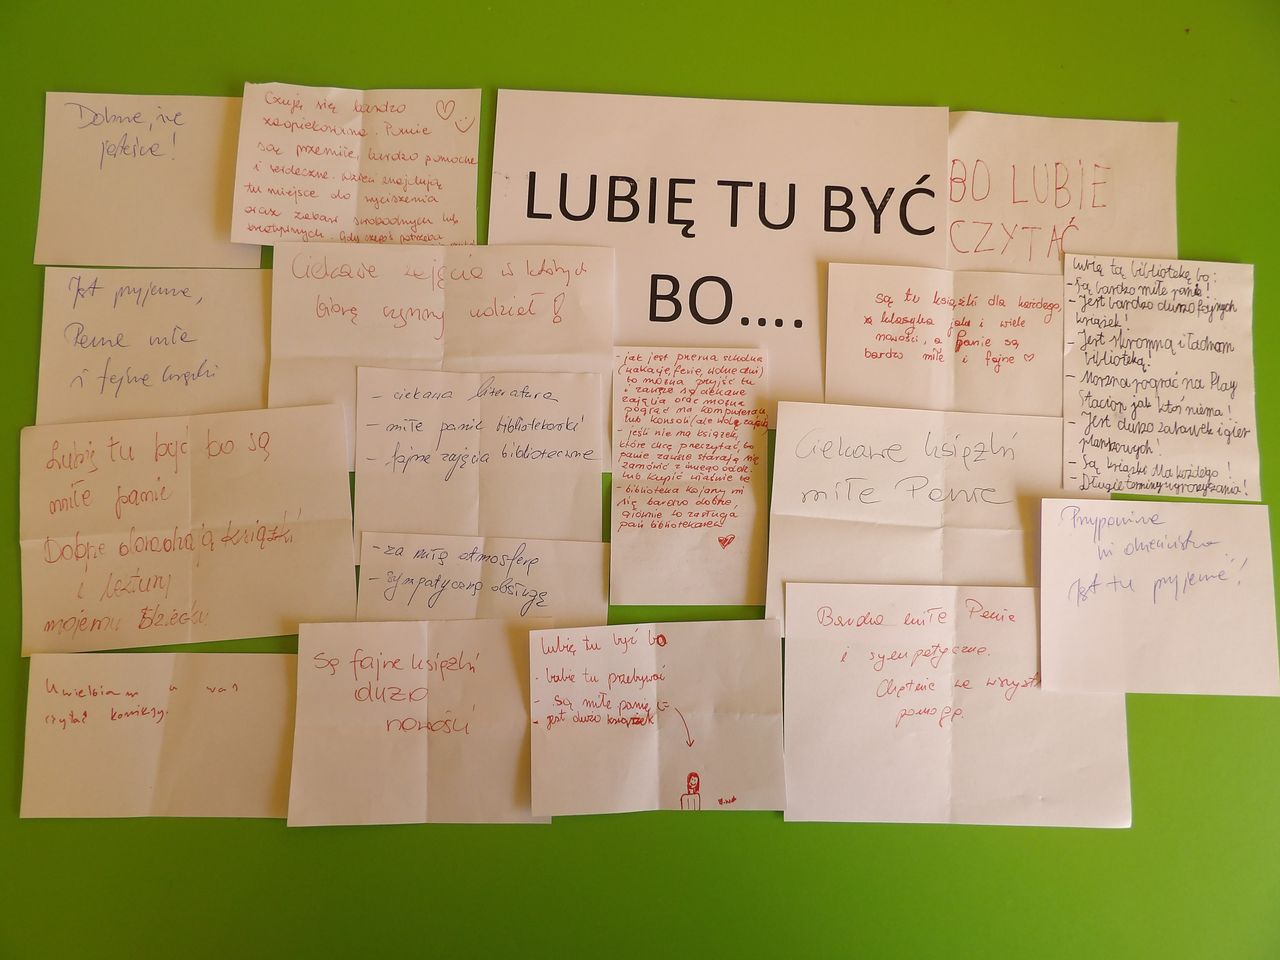 LUBIĘ TU BYĆ
BO....
Dobrze, że
jesteście!
Czuję się bardzo
zaopiekowana. Panie
są przemiłe, bardzo pomocne
i serdeczne. Dzieci znajdują
tu miejsce do wyciszenia
oraz zabaw swobodnych lub
kreatywnych. Gdy czegoś potrzeba
BO LUBIE
CZYTAĆ
Jest przyjemnie,
Panie miłe
i fajne książki
Ciekawe zajęcia w których
biorę czynny udział!
są tu książki dla każdego,
klasyka jak i wiele
nowości, a Panie są
bardzo miłe i fajne
lubię tą bibliotekę bo:
- Są bardzo miłe panie!
- Jest bardzo dużo fajnych
książek!
- Jest skromną i ładnom
biblioteką.
- Można pograć na Play
Stacion jak ktoś niema!
- Jest dużo zabawek i gier
planszowych!
- Są książki dla każdego!
- Długie terminy wypożyczania!
- ciekawa literatura
- miłe panie bibliotekarki
- fajne zajęcia biblioteczne
- jak jest przerwa szkolna
(wakacje, ferie, wolne dni)
to można przyjść tu
i zawsze są ciekawe
zajęcia oraz można
pograć na komputerach
lub konsoli (ale wolę zajęcia)
- jeśli nie ma książek,
które chcę przeczytać, to
panie zawsze starają się
zamówić z innego oddz.
lub kupić właśnie te
- biblioteka kojarzy mi
się bardzo dobrze,
głównie to zasługa
pań bibliotekarek
Lubię tu być bo są
miłe panie
Dobrze doradzają książki
i lektury
mojemu dziecku
Ciekawe książki
miłe Panie
- za miłą atmosferę
- sympatyczną obsługę
Przypomina
mi dzieciństwo
Jest tu przyjemnie!
Uwielbiam u was
czytać komiksy.
Są fajne książki
dużo
nowości
lubię tu być bo
- lubię tu przebywać
- są miłe panie
- jest dużo książek
Bardzo miłe Panie
i sympatyczne.
Chętnie we
pomogą.